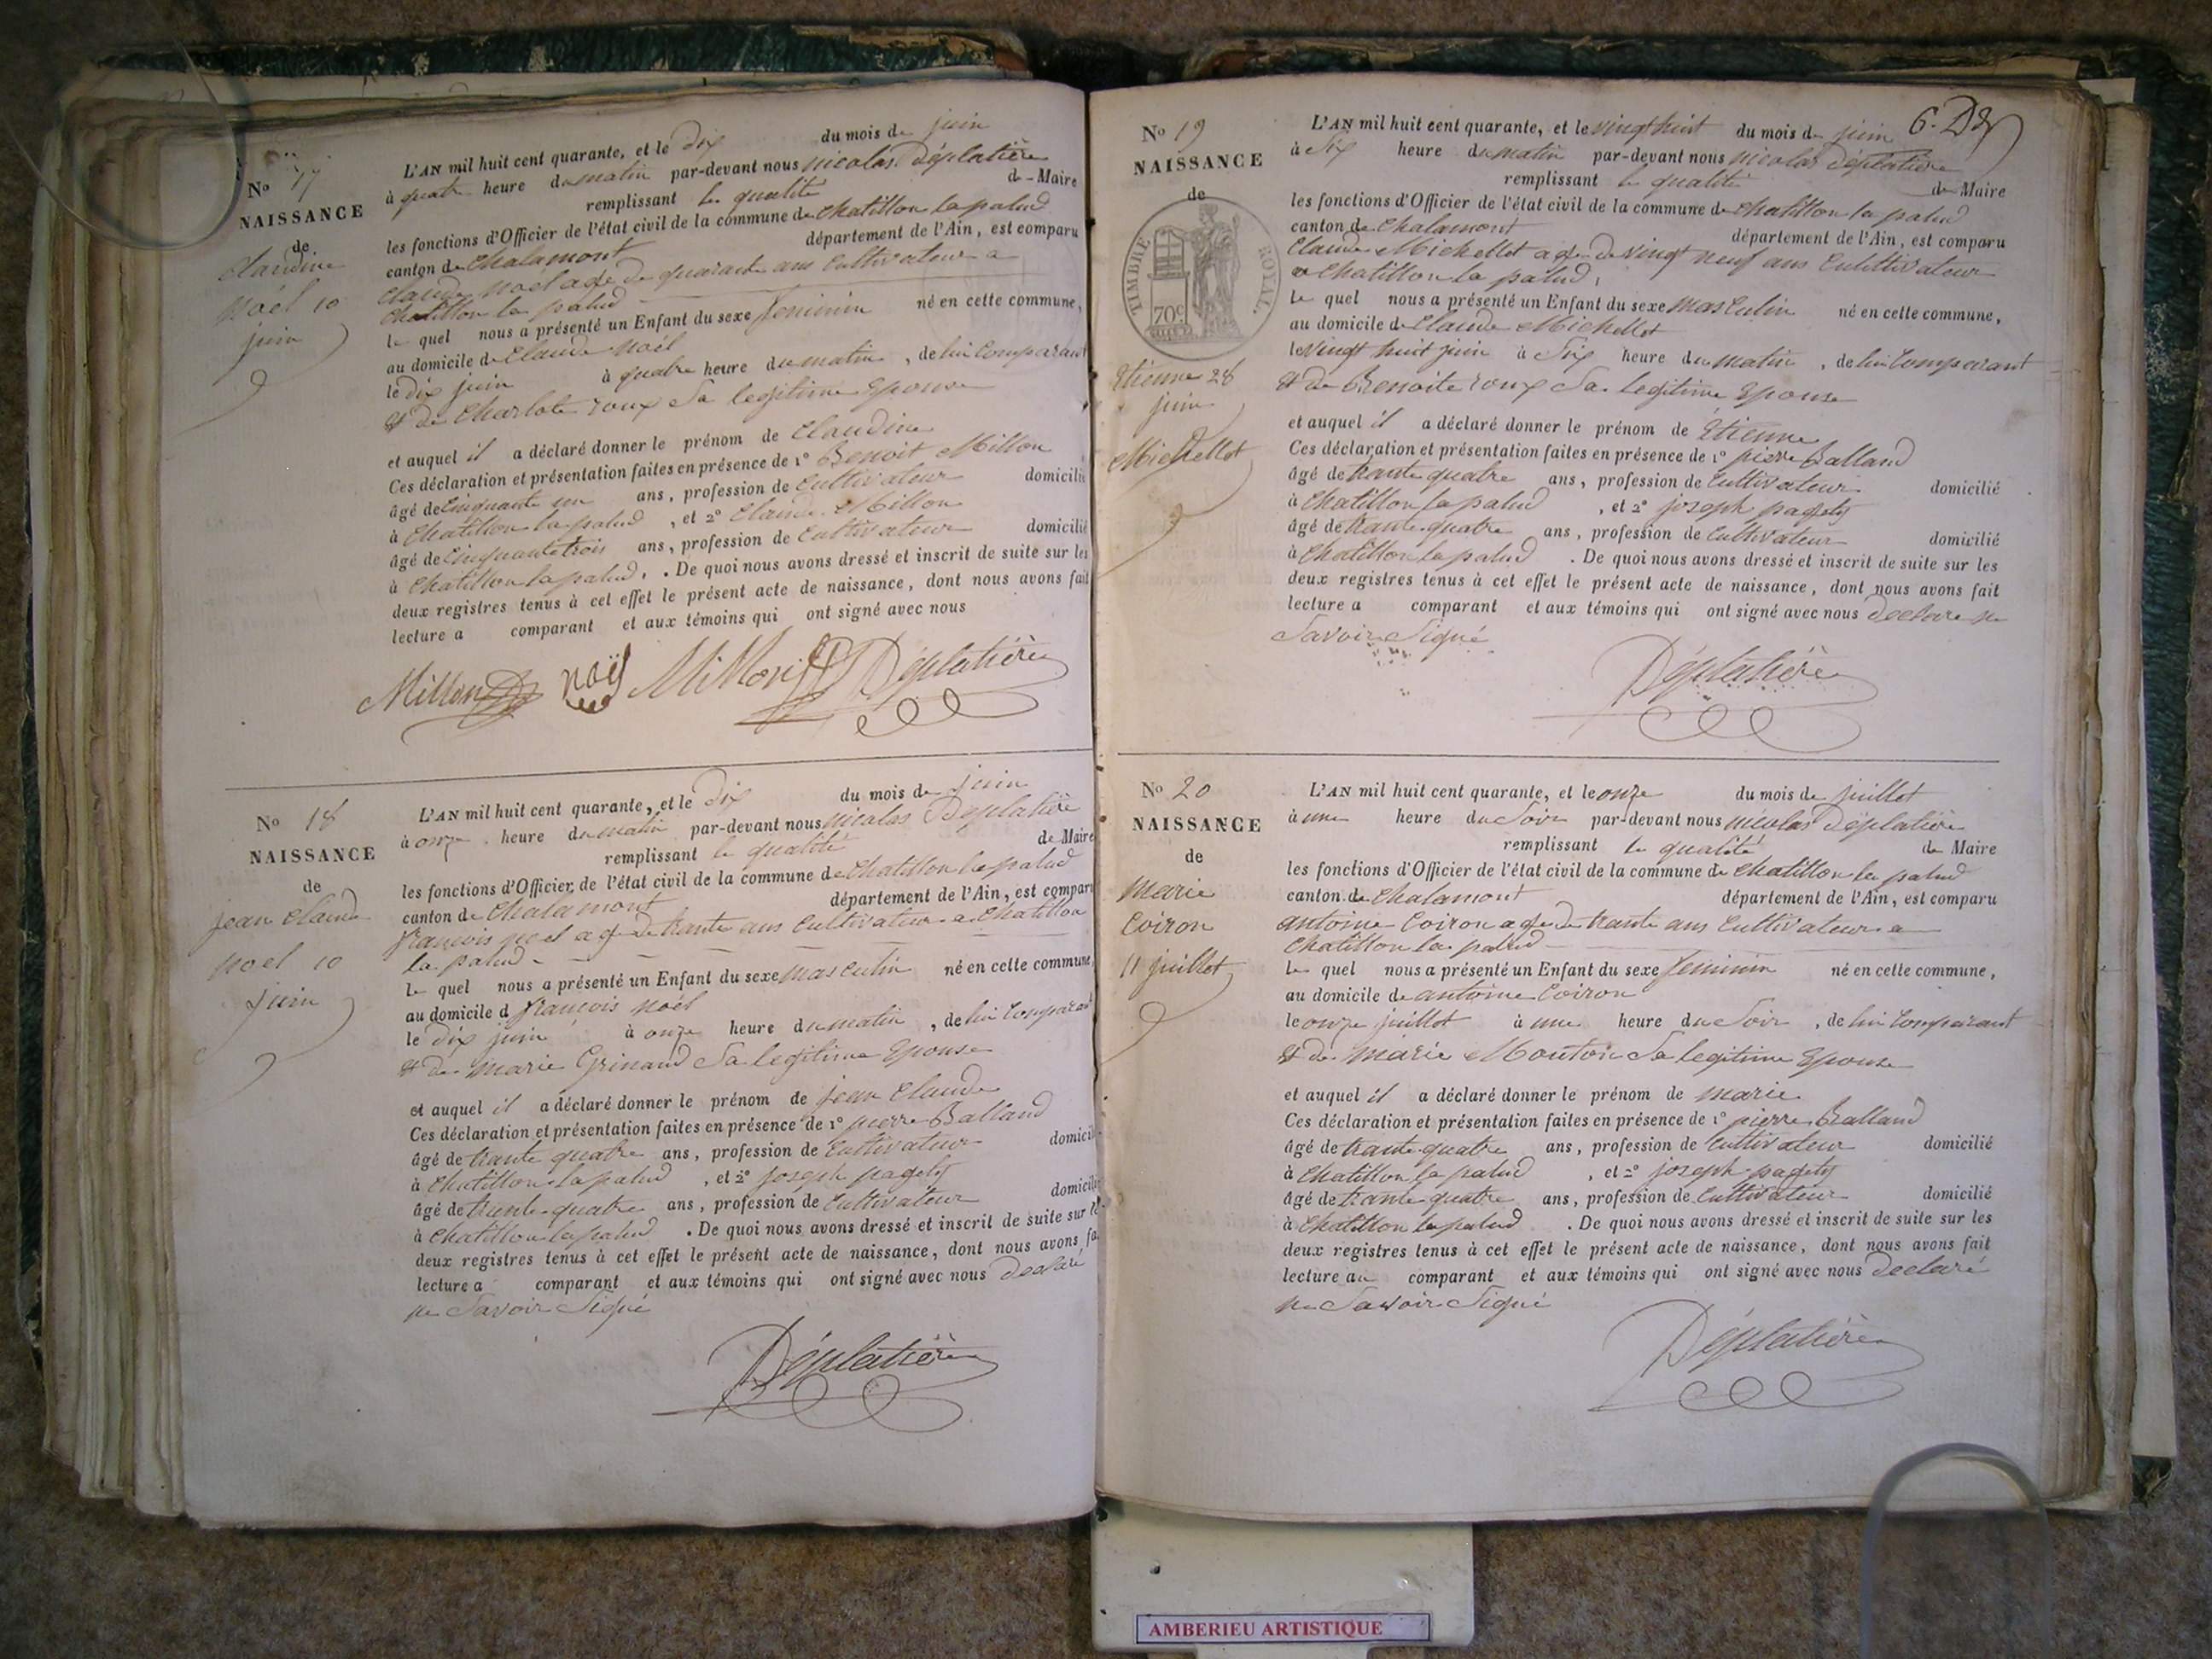 No 17
NAISSANCE
de
Claudine
noël 10
juin
L'AN mil huit cent quarante, et le dix du mois de juin
à quatre heure du matin par-devant nous nicolas Déplatière
remplissant la qualité de Maire
les fonctions d'Officier de l'état civil de la commune de Chatillon la palud
canton de Chalamont département de l'Ain, est comparu
Claude noël agé de quarante ans Cultivateur a
Chatillon la palud
le quel nous a présenté un Enfant du sexe feminin né en cette commune,
au domicile de Claude noël
le dix juin à quatre heure du matin, de lui Comparant
et de Charlote roux Sa legitime Epouse
et auquel il a déclaré donner le prénom de Claudine
Ces déclaration et présentation faites en présence de 1° Benoit Millon
âgé de Cinquante un ans, profession de Cultivateur domicilié
à Chatillon la palud, et 2° Claude Millon
âgé de Cinquante trois ans, profession de Cultivateur domicilié
à Chatillon la palud. De quoi nous avons dressé et inscrit de suite sur les
deux registres tenus à cet effet le présent acte de naissance, dont nous avons fait
lecture a comparant et aux témoins qui ont signé avec nous
Millon noël Millon Déplatière
No 18
NAISSANCE
de
jean Claude
noel 10
juin
L'AN mil huit cent quarante, et le dix du mois de juin
à onze heure du matin par-devant nous nicolas Déplatière
remplissant la qualité de Maire
les fonctions d'Officier de l'état civil de la commune de Chatillon la palud
canton de Chalamont département de l'Ain, est comparu
françois noel agé de trante ans Cultivateur a Chatillon
la palud
le quel nous a présenté un Enfant du sexe masculin né en cette commune,
au domicile d françois noël
le dix juin à onze heure du matin, de lui Comparant
et de marie Grinand Sa legitime Epouse
et auquel il a déclaré donner le prénom de jean Claude
Ces déclaration et présentation faites en présence de 1° pierre Balland
âgé de trante quatre ans, profession de Cultivateur domicilié
à Chatillon la palud, et 2° joseph pagety
âgé de trante quatre ans, profession de Cultivateur domicilié
à Chatillon la palud. De quoi nous avons dressé et inscrit de suite sur les
deux registres tenus à cet effet le présent acte de naissance, dont nous avons fa
lecture a comparant et aux témoins qui ont signé avec nous declaré
ne Savoir Signé
Déplatière
6.
No 19
NAISSANCE
de
TIMBRE ROYAL.
70c
Etienne 28
juin
Michellet
L'AN mil huit cent quarante, et le vingt huit du mois de juin
à Six heure du matin par-devant nous nicolas Déplatière
remplissant la qualité de Maire
les fonctions d'Officier de l'état civil de la commune de Chatillon la palud
canton de Chalamont département de l'Ain, est comparu
Claude Michellet agé de vingt neuf ans Cultivateur
a Chatillon la palud,
le quel nous a présenté un Enfant du sexe masculin né en cette commune,
au domicile de Claude Michellet
le vingt huit juin à Six heure du matin, de lui Comparant
et de Benoite roux Sa legitime Epouse
et auquel il a déclaré donner le prénom de Etienne
Ces déclaration et présentation faites en présence de 1° pierre Balland
âgé de trante quatre ans, profession de Cultivateur domicilié
à Chatillon la palud, et 2° joseph pagety
âgé de trante quatre ans, profession de Cultivateur domicilié
à Chatillon la palud. De quoi nous avons dressé et inscrit de suite sur les
deux registres tenus à cet effet le présent acte de naissance, dont nous avons fait
lecture a comparant et aux témoins qui ont signé avec nous declare ne
Savoir Signé
Déplatière
No 20
NAISSANCE
de
Marie
Coiron
11 juillet
L'AN mil huit cent quarante, et le onze du mois de juillet
à une heure du Soir par-devant nous nicolas Déplatière
remplissant la qualité de Maire
les fonctions d'Officier de l'état civil de la commune de Chatillon la palud
canton de Chalamont département de l'Ain, est comparu
antoine Coiron agé de trante ans Cultivateur a
Chatillon la palud
le quel nous a présenté un Enfant du sexe feminin né en cette commune,
au domicile de antoine Coiron
le onze juillet à une heure du Soir, de lui Comparant
et de Marie Mouton Sa legitime Epouse
et auquel il a déclaré donner le prénom de marie
Ces déclaration et présentation faites en présence de 1° pierre Balland
âgé de trante quatre ans, profession de Cultivateur domicilié
à Chatillon la palud, et 2° joseph pagety
âgé de trante quatre ans, profession de Cultivateur domicilié
à Chatillon la palud. De quoi nous avons dressé et inscrit de suite sur les
deux registres tenus à cet effet le présent acte de naissance, dont nous avons fait
lecture au comparant et aux témoins qui ont signé avec nous declaré
ne Savoir Signé
Déplatière
AMBERIEU ARTISTIQUE